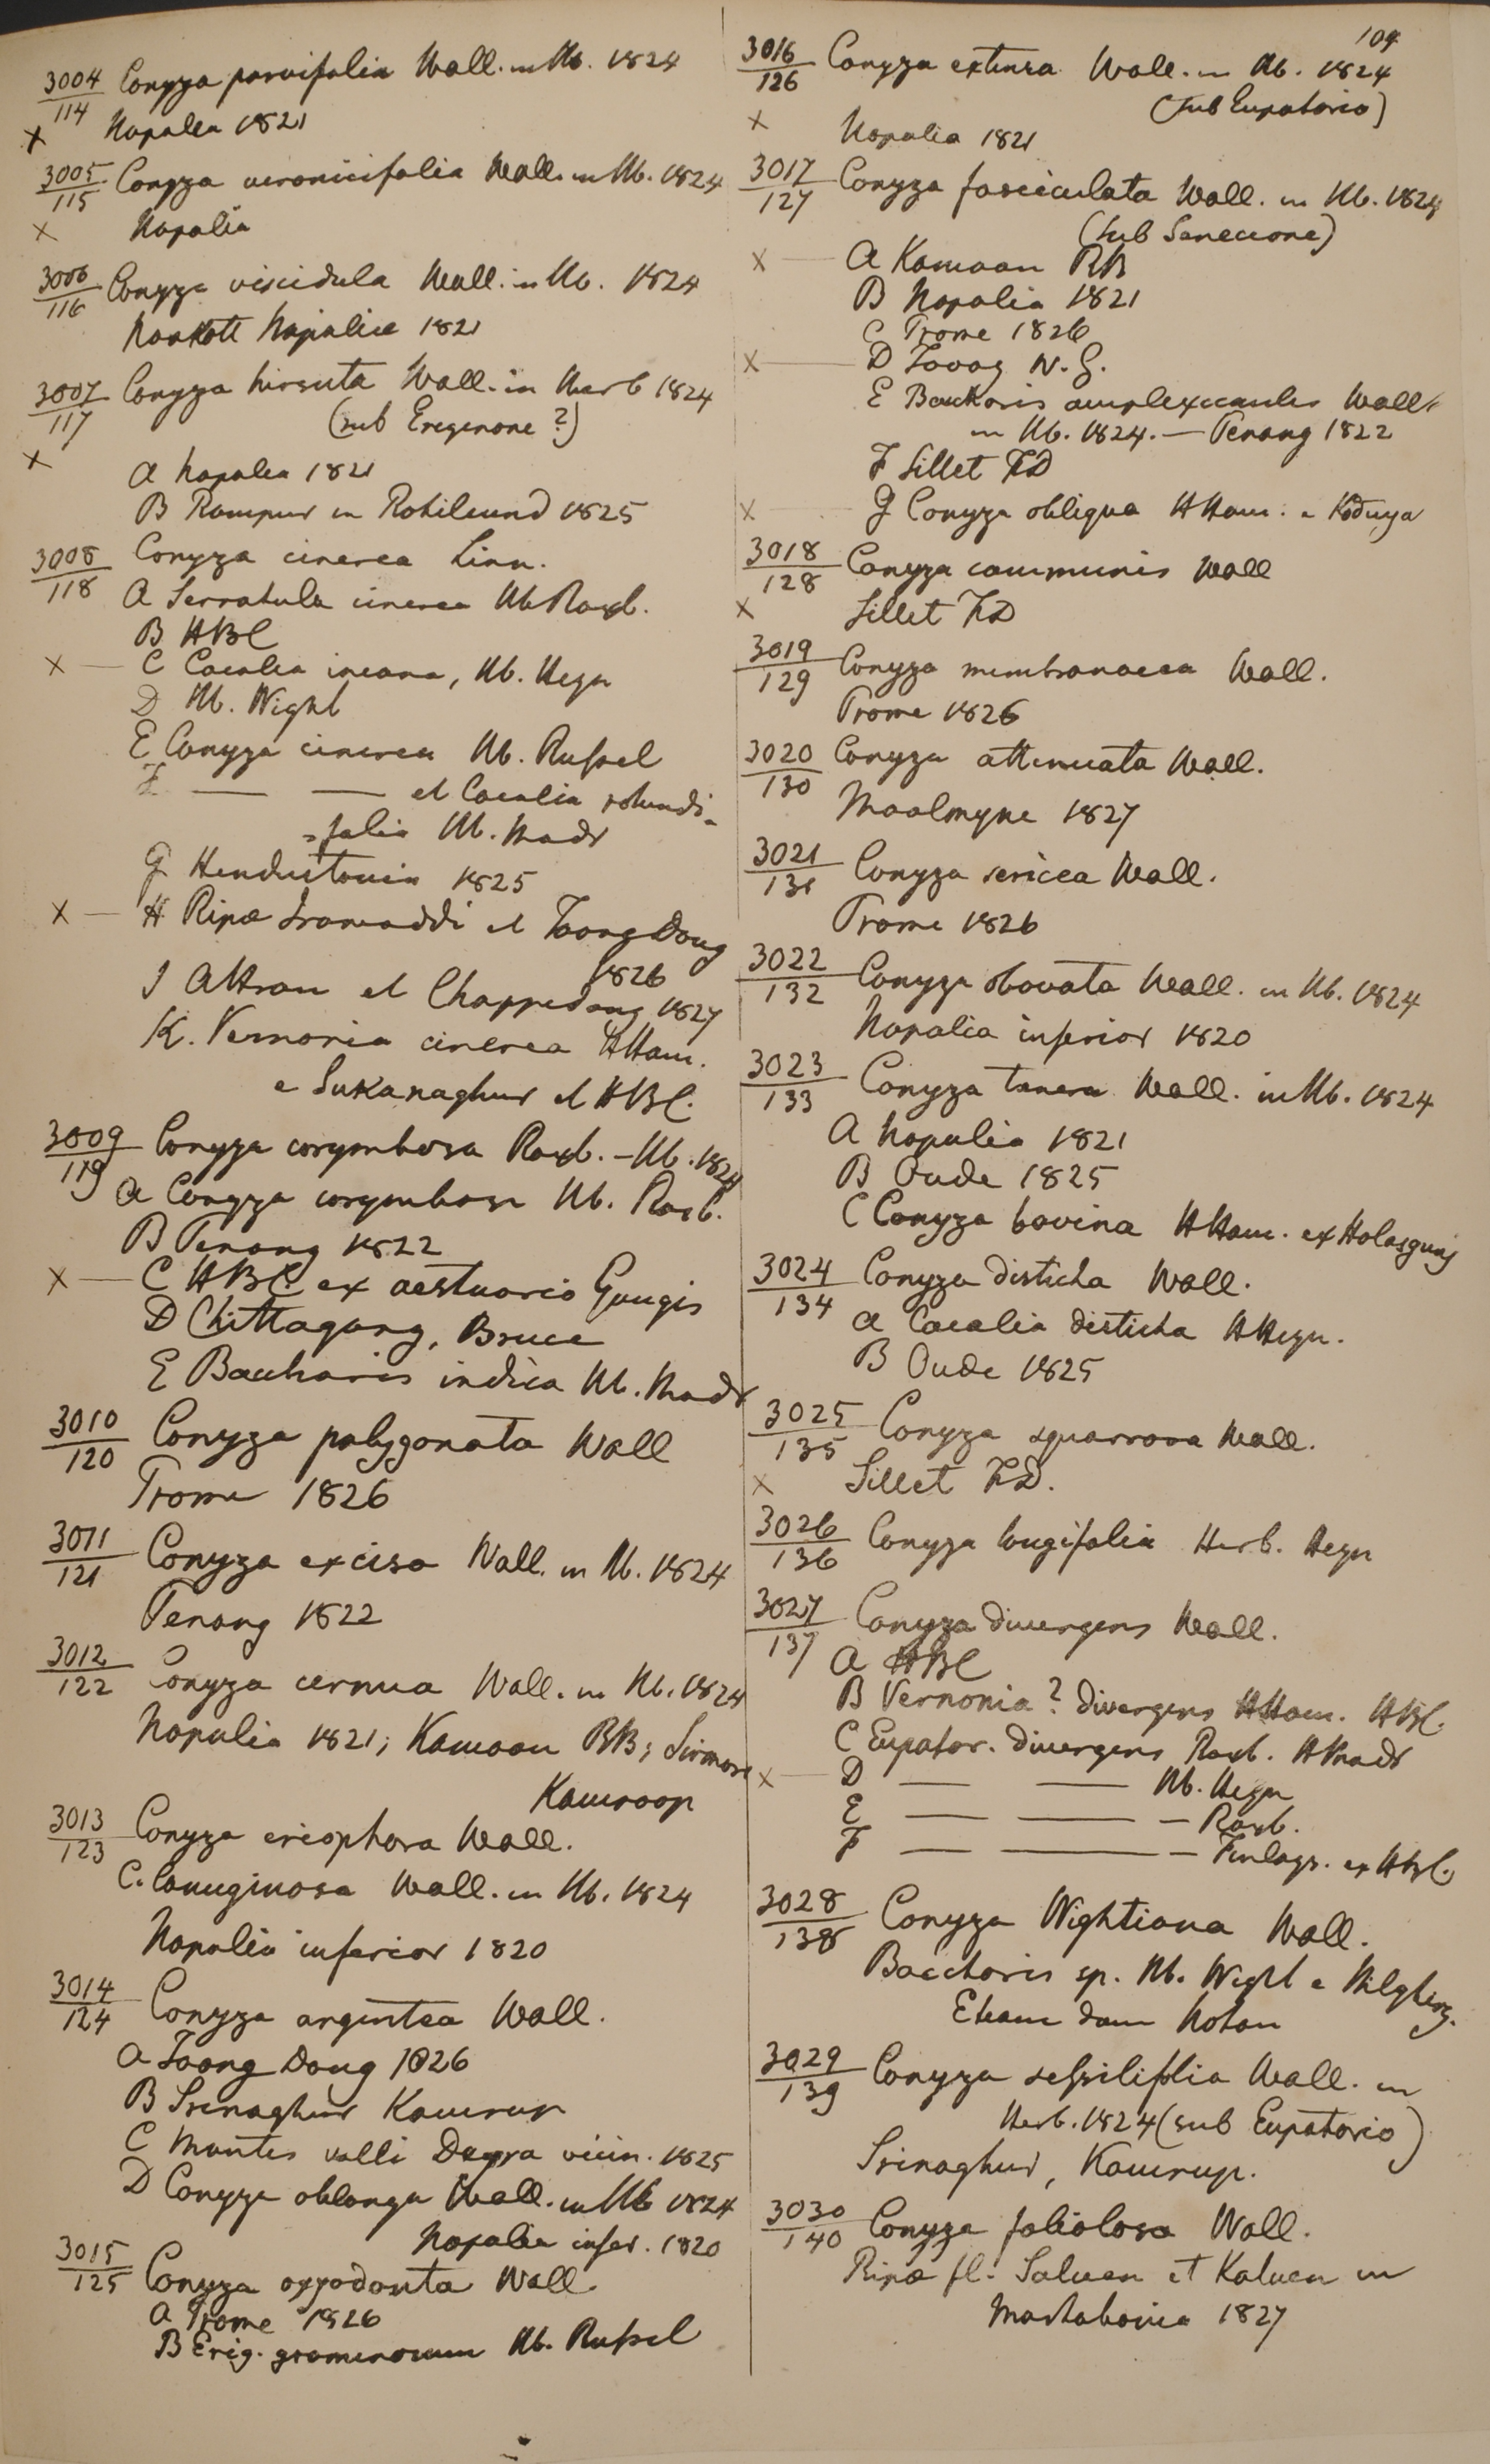 3004/114 Conyza parvifolia Wall. in Hb. 1824
x Napalia 1821
3005/115 Conyza veronicifolia Wall. in Hb. 1824
x Napalia
3006/116 Conyza viscidula Wall. in Hb. 1824
Napaliae 1821
3007/117 Conyza hirsuta Wall. in Herb 1824
(sub Erigerone ?)
x
A Napalia 1821
B Rampur in Rohilcund 1825
3008/118 Conyza cinerea Linn.
A Serratula cinerea Hb Roxb.
B HBC
x — C Cacalia incana, Hb. Heyn
D Hb. Wight
E Conyza cinerea Hb. Russel
F — — et Cacalia rotundi-
-folia Hb. Madr
G Hindustania 1825
x — H Ripa Irawaddi et Toong Dong
1826
I Attran et Chappedong 1827
K. Vernonia cinerea HHam.
e Sukanaghur et HBC.
3009/119 Conyza corymbosa Roxb. — Hb. 1824
A Conyza corymbosa Hb. Roxb.
B Penang 1822
x — C HBC ex aestuario Gangis
D Chittagong, Bruce
E Baccharis indica Hb. Madr
3010/120 Conyza polygonata Wall
Prome 1826
3011/121 Conyza excisa Wall. in Hb. 1824
Penang 1822
3012/122 Conyza cernua Wall. in Hb. 1824
Napalia 1821; Kamaon RB; Sirmore
Kamroop
3013/123 Conyza eriophora Wall.
C. lanuginosa Wall. in Hb. 1824
Napalia inferior 1820
3014/124 Conyza argentea Wall.
A Toong Dong 1826
B Srinaghur Kamrup
C Montes valli Deyra vicin. 1825
D Conyza oblonga Wall. in Hb 1824
Napalia infer. 1820
3015/125 Conyza oxyodonta Wall.
A Prome 1826
B Erig. graminoum Hb. Russel
104
3016/126 Conyza extensa Wall. in Hb. 1824
(sub Eupatorio)
x Napalia 1821
3017/127 Conyza fasciculata Wall. in Hb. 1824
(sub Senecione)
x — A Kamaon RB
B Napalia 1821
C Prome 1826
x — D Tavoy W. G.
E Baccharis amplexicaulis Wall.
in Hb. 1824. — Penang 1822
F Sillet FD
x — G Conyza obliqua HHam. e Koduya
3018/128 Conyza communis Wall
x Sillet FD
3019/129 Conyza membranacea Wall.
Prome 1826
3020/130 Conyza attenuata Wall.
Moalmyne 1827
3021/131 Conyza sericea Wall.
Prome 1826
3022/132 Conyza obovata Wall. in Hb. 1824
Napalia inferior 1820
3023/133 Conyza tenera Wall. in Hb. 1824
A Napalia 1821
B Oude 1825
C Conyza bovina HHam. ex Holasgunj
3024/134 Conyza disticha Wall.
A Cacalia disticha HHeyn.
B Oude 1825
3025/135 Conyza squarrosa Wall.
x Sillet FD.
3026/136 Conyza longifolia Herb. Heyn
3027/137 Conyza divergens Wall.
A HBC
B Vernonia? divergens HHam. HBC.
C Eupator. divergens Roxb. HMadr
x — D — — Hb. Heyn
E — — — Roxb.
F — — — Finlays. ex HBC.
3028/138 Conyza Wightiana Wall.
Baccharis sp. Hb. Wight e Nilgherg.
Etiam dam Noton
3029/139 Conyza sessilifolia Wall. in
Herb. 1824 (sub Eupatorio)
Srinaghur, Kamrup.
3030/140 Conyza foliolosa Wall.
Ripa fl. Saluen et Kaluen in
Martabania 1827